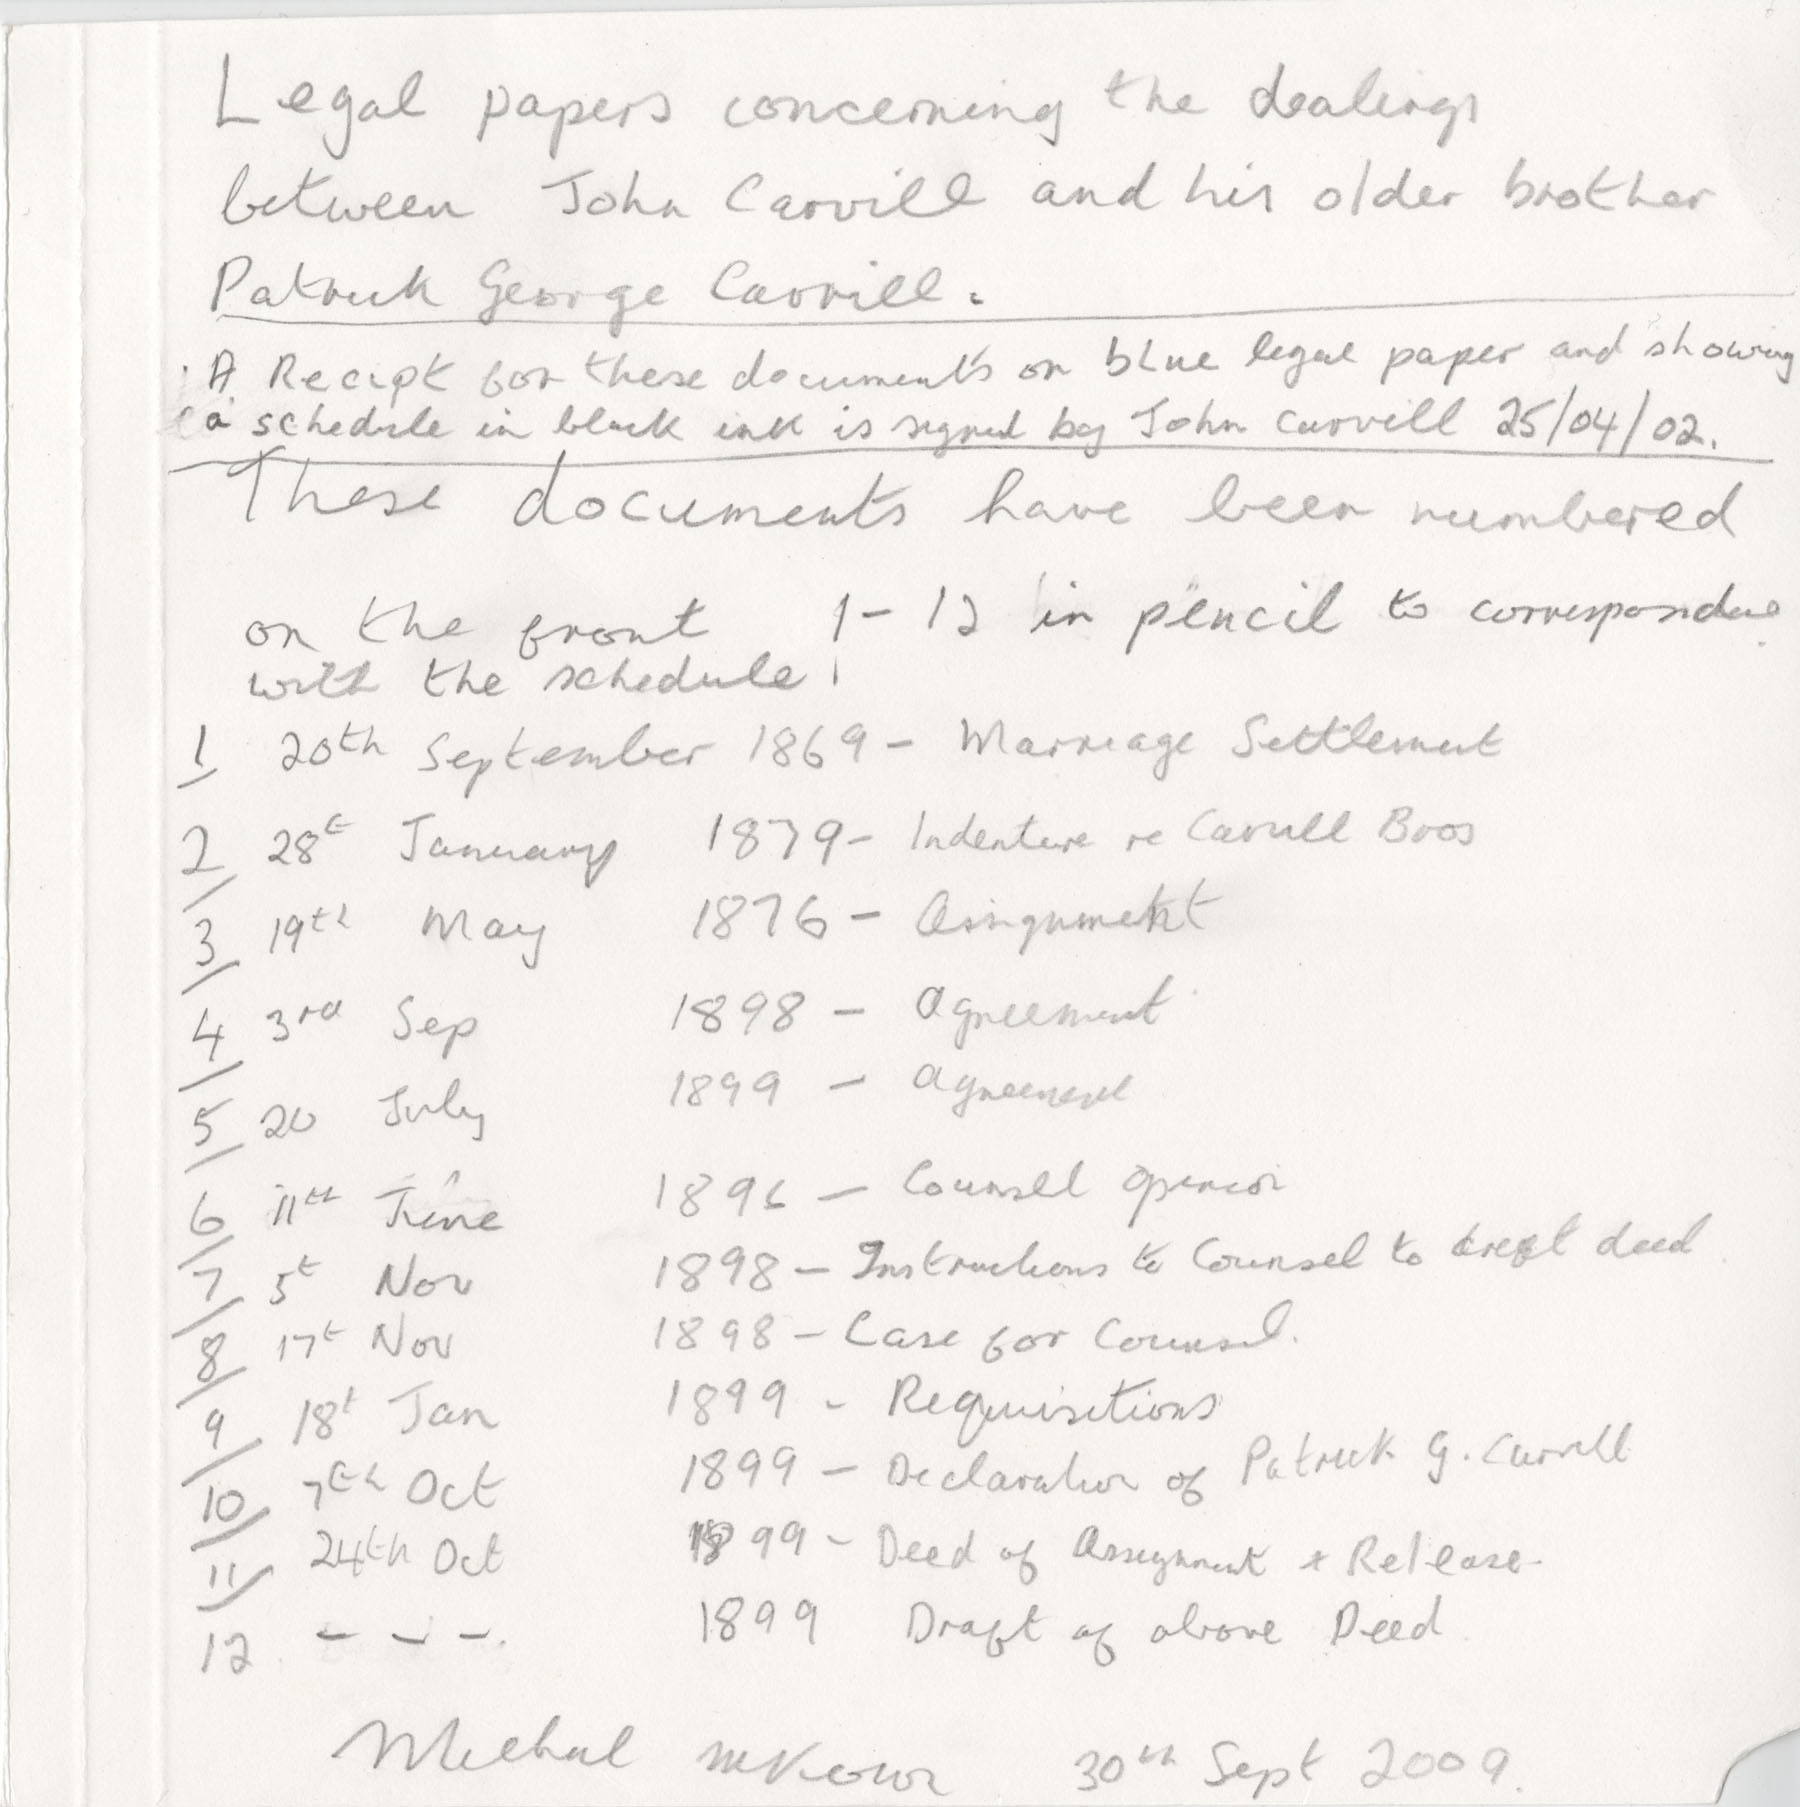 Legal papers concerning the dealings
between John Carvill and his older brother
Patrick George Carvill.
A Recipt for these documents on blue legal paper and showing
a schedule in black ink is signed by John Carvill 25/04/02.
These documents have been numbered
on the front 1-12 in pencil to correspondene
with the schedule!
1/ 20th September 1869 - Marriage Settlement
2/ 28t January 1879 - Indenture re Carvill Bros
3/ 19th May 1876 - Assignment
4/ 3rd Sep 1898 - Agreement
5/ 20 July 1899 - Agreement
6/ 11th June 1896 - Counsel opinion
7/ 5t Nov 1898 - Instructions to Counsel to draft deed
8/ 17t Nov 1898 - Case for Counsel.
9/ 18t Jan 1899 - Requisitions
10/ 7th Oct 1899 - Declaration of Patrick G. Carvill
11/ 24th Oct 1899 - Deed of Assignment + Release
12 - - -. 1899 Draft of above Deed
Michael McKeown 30th Sept 2009.